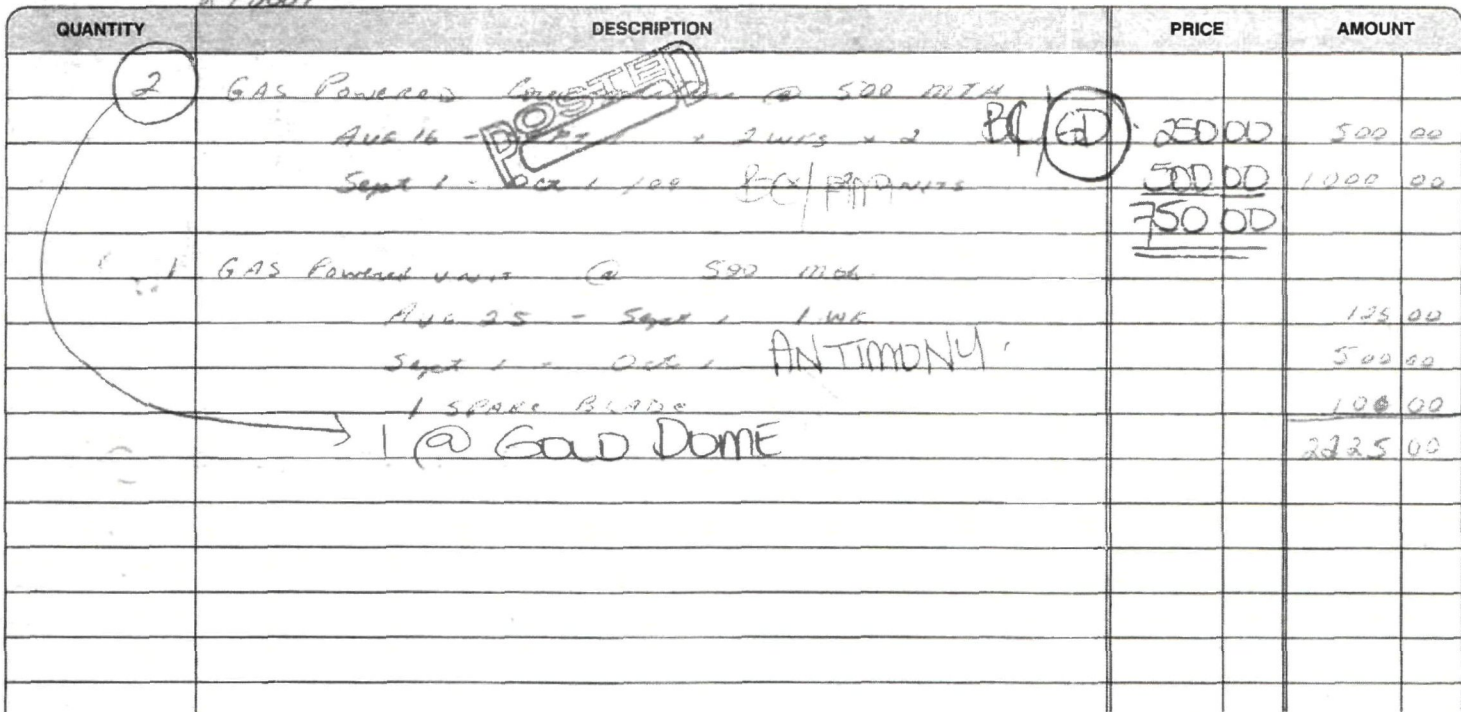 QUANTITY DESCRIPTION PRICE AMOUNT
2 GAS Powered @ 500 MTH
POSTED
AUG 16 - 2 WKS x 2 BC/GD 250 00 500 00
Sept 1 - Oct 1 /09 500 00 1000 00
750 00
1 GAS Powered unit @ 500 Mth
AUG 25 - Sept 1 1 WK 125 00
Sept 1 - Oct 1 ANTIMONY 500 00
1 SPARE BLADE 100 00
1 @ GOLD DOME 2225 00